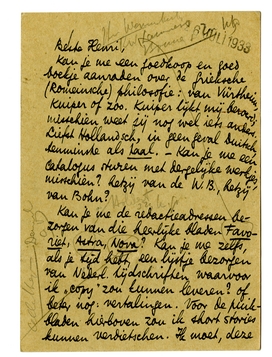 JULI 1933
Beste Henri,
Kan je me een goedkoop en goed
boekje aanraden over de Grieksche
(Romeinsche) philosofie: van Vürtheim,
Kuiper of zoo. Kuiper lijkt mij bevoegd,
misschien weet jij nog wel iets anders.
Liefst Hollandsch, in geen geval duitsch
tenminste als taal. – Kan je me een
catalogus sturen met dergelijke werkjes
misschien? hetzij van de W.B., hetzij
van Bohn?
Kan je me de redactieadressen be-
zorgen van die heerlijke bladen Favo-
riet, Astra, Nova? Kan je me zelfs,
als je tijd hebt, een lijstje bezorgen
van Nederl. tijdschriften, waarvoor
ik „copy” zou kunnen leveren? of
beter nog: vertalingen. Voor de
bladen hierboven zou ik short stories
kunnen verdietschen. Ik moet, deze